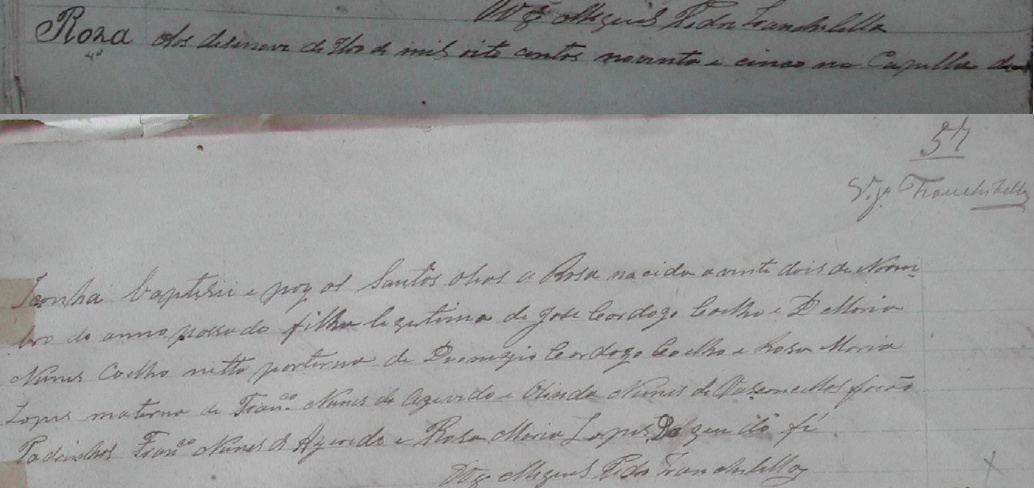 Vigº Miguel Pedro Tranchitella
Roza Aos desenove de de mil oito centos noventa e cinco na Capella da
4º
57
Vigº Tranchitella
baptisei e puz os Santos oleos a Rosa nacida a vinte dois de Novem
bro do anno passado filha legitima de José Cardozo Coelho e D Maria
Nunes Coelho netta paterna de Cardozo Coelho e Rosa Maria
Lopes materna de Franco Nunes de Azevedo e Nunes de Vasconcellos forão
Padrinhos Franco Nunes de Azevedo e Rosa Maria Lopes. Do que dô fé
Vigº Miguel Pedro Tranchitella